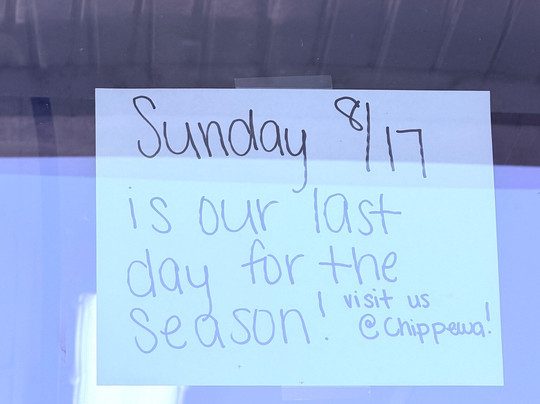 Sunday 8/17
is our last
day for the
season! visit us
@Chippewa!